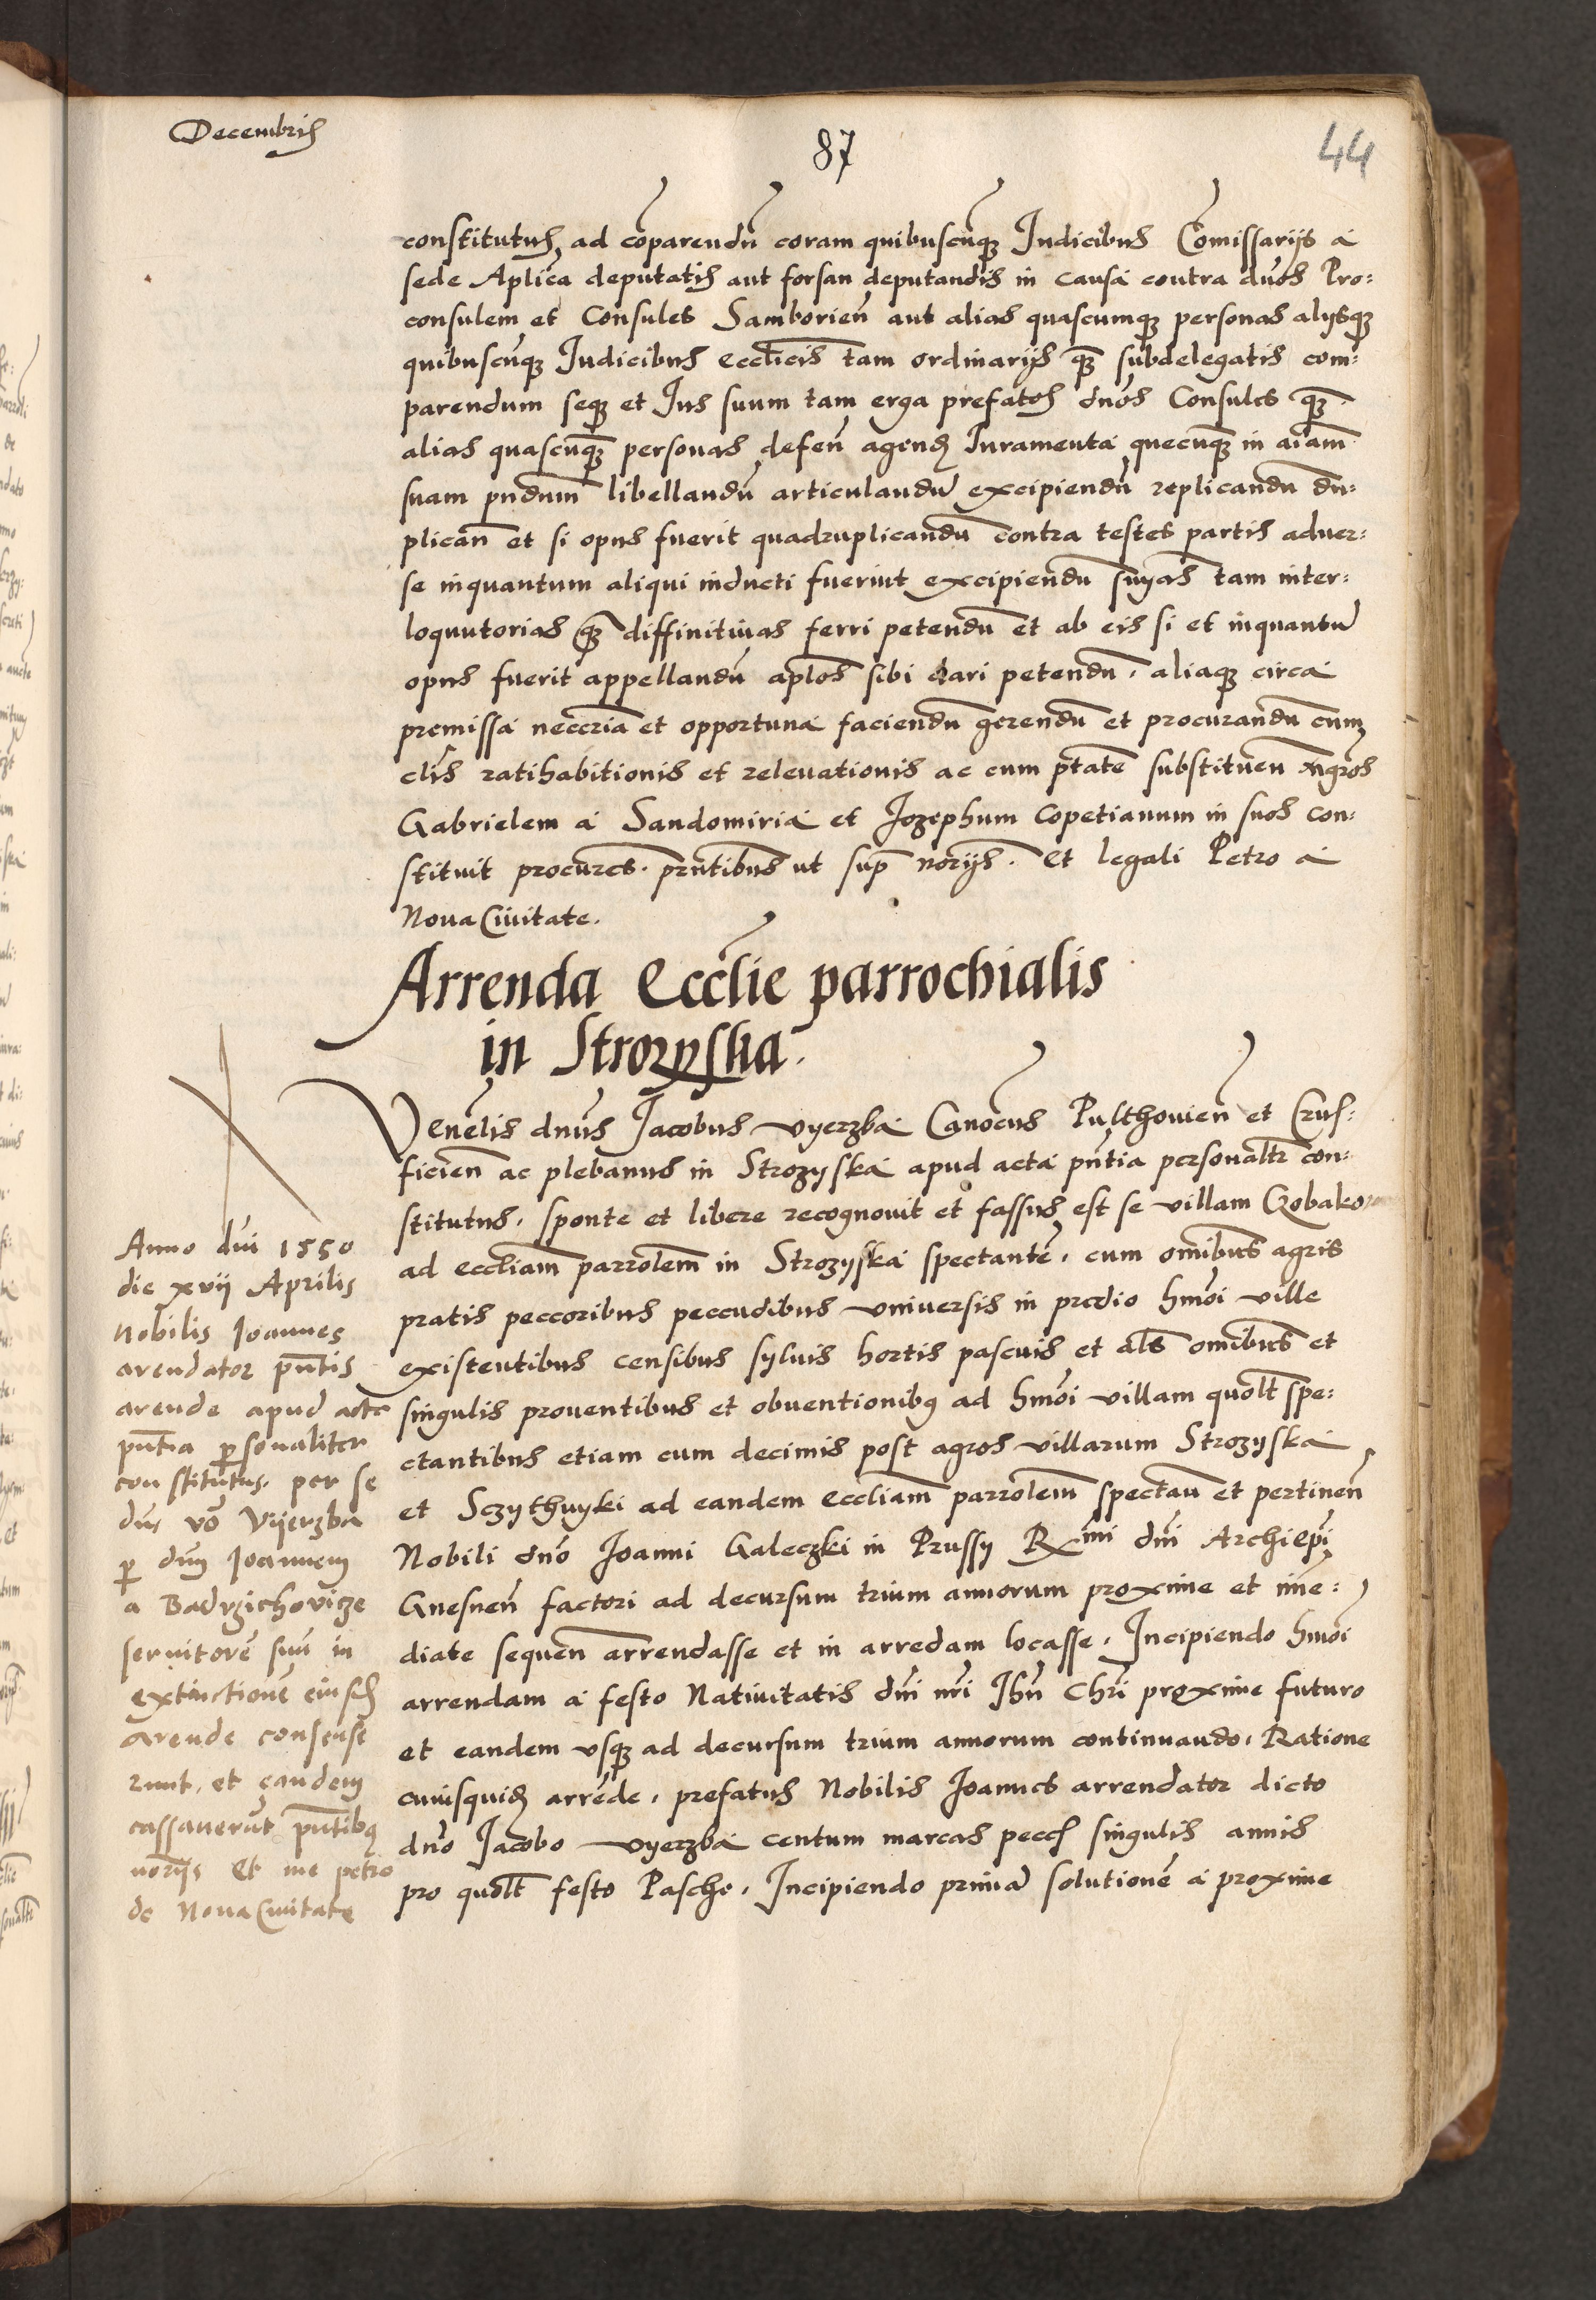 Decembris
87
44
constitutus, ad cōparendū coram quibuscūqȝ Iudicibus Cōmissarijs a
sede Aplica deputatis aut forsan deputandis in causa contra dnos Pro:
consulem et Consules Samborien̄ aut alias quascumqȝ personas alijsqȝ
quibuscūqȝ Iudicibus eccl̄icis tam ordinarijs qȝ subdelegatis com:
parendum seqȝ et Ius suum tam erga prefatos dnos Consules qȝ
alias quascūqȝ personas defen̄ agend Iuramenta quecūqȝ in aīam
suam pn̄dum libellandū articulandū excipiendū replicandū du:
plican̄ et si opus fuerit quadruplicandū contra testes partis aduer:
se inquantum aliqui inducti fuerint excipiendū sn̄ias tam inter:
loquutorias qȝ diffinitiuas ferri petendū et ab eis si et inquantū
opus fuerit appellandū aplos sibi dari petendū. aliaqȝ circa
premissa neccria et opportuna faciendū gerendū et procurandū cum
clis ratihabitionis et releuationis ac cum ptate substituen̄ Mgros
Gabrielem a Sandomiria et Iozephum Copetianum in suos con:
stituit procures. pn̄tibus ut sup̄ norijs. et legali Petro a
Noua Ciuitate.
Arrenda Eccl̄ie parrochialis
in Strozyska.
Venelis dnus Iacobus vyerzba Canocus Pulthouien̄ et Crus:
ficien̄ ac plebanus in Strozyska apud acta pn̄tia personaltr con:
stitutus. sponte et libere recognouit et fassus est se villam
ad eccliam parrolem in Strozyska spectantē. cum omībus agris
pratis peccoribus peccudibus vniuersis in predio hmōi ville
existentibus censibus syluis hortis pascuis et als omībus et
singulis prouentibus et obuentionibȝ ad hmōi villam quolt spe:
ctantibus etiam cum decimis post agros villarum Strozyska
et Sczythnyki ad eandem eccliam parrolem spectan̄ et pertinen̄
Nobili dno Ioanni Galeczki in Prussy Rximi dni Archiepi
Gnesnen̄ factori ad decursum trium annorum proxime et ime:
diate sequen̄ arrendasse et in arredam locasse. Incipiendo hmōi
arrendam a festo Natiuitatis dni nri Ihu Chri proxime futuro
et eandem vsqȝ ad decursum trium annorum continuando. Ratione
cuiusquid arrēde. prefatus Nobilis Ioannes arrendator dicto
dno Iacobo vyerzba centum marcas pecc singulis annis
pro quolt festo Pasche. Incipiendo primā solutionē a proxime
Anno dni 1550
die xvij Aprilis
Nobilis Ioannes
arendator pn̄tis
arende apud acta
pn̄tia personaliter
constitutus. per se
dns vō Vijerzba
p dnm Ioannem
a Badrzichovicze
seruitorē suū in
extinctionē eiusd
arende consense
runt. et eandem
cassauerūt pn̄tibȝ
norijs Et me petro
de Noua Ciuitate